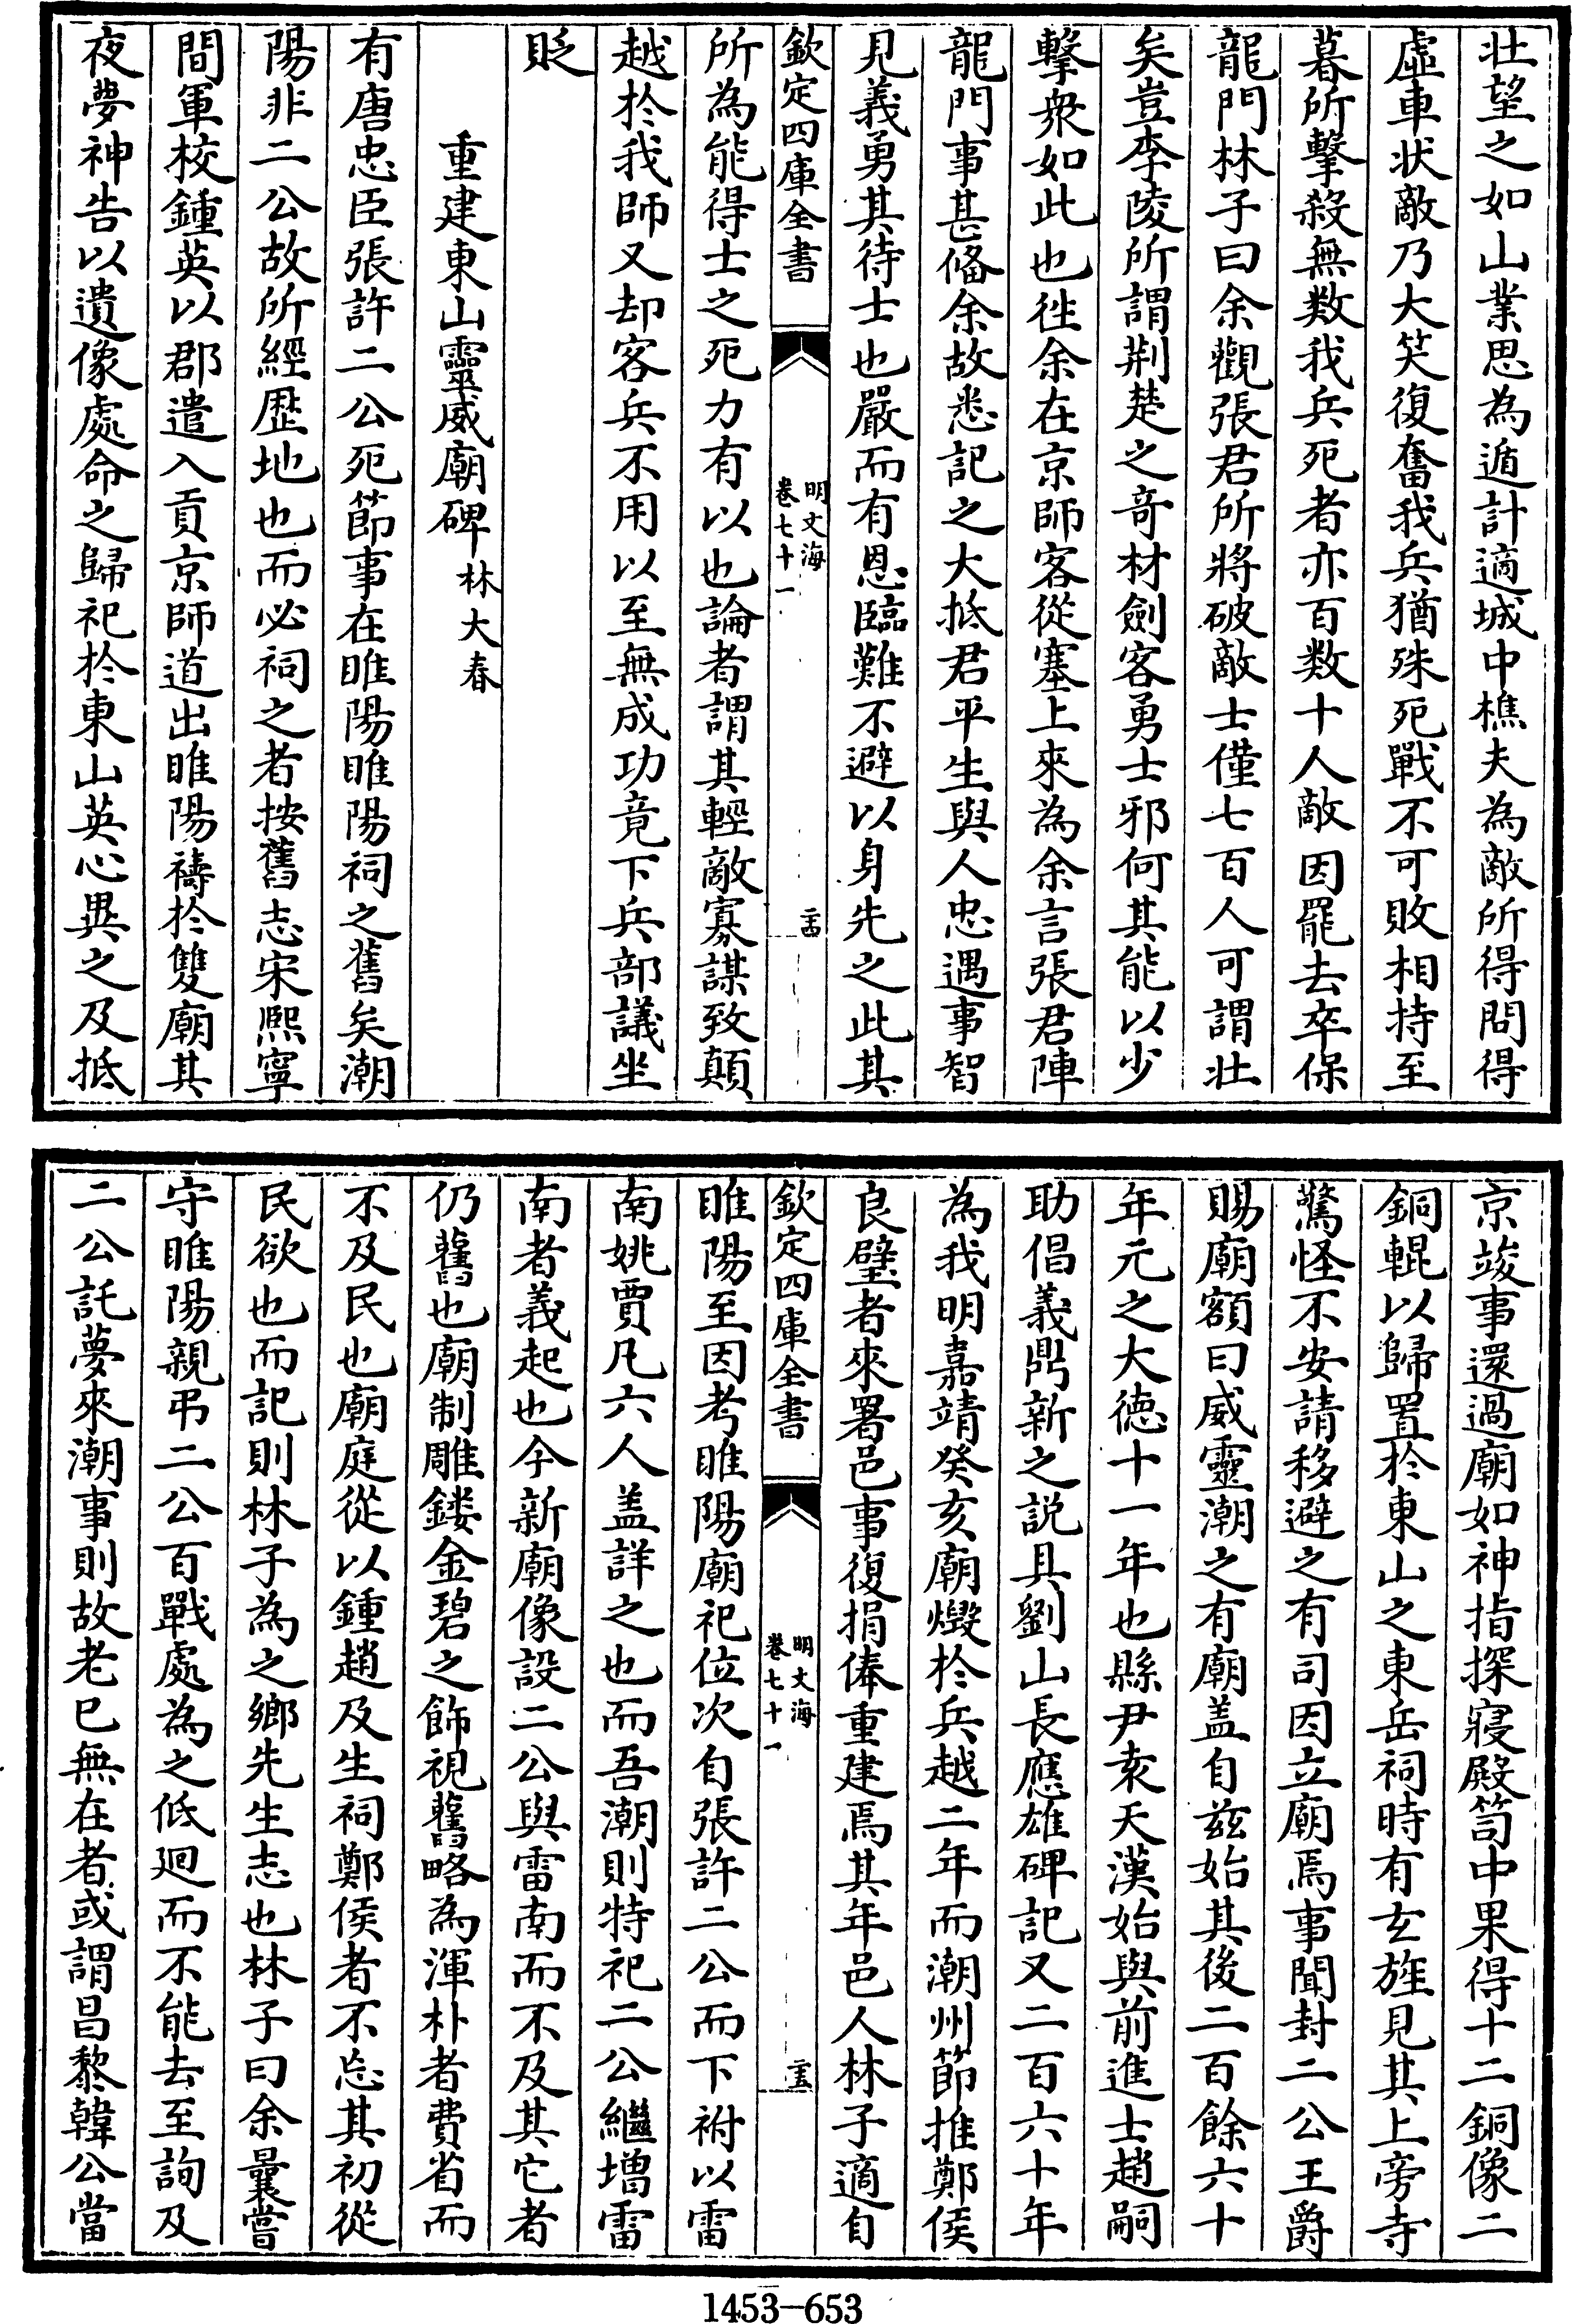 壯望之如山業思為遁計適城中樵夫為敵所得問得
虛車狀敵乃大笑復奮我兵猶殊死戰不可敗相持至
暮所擊殺無数我兵死者亦百数十人敵因罷去卒保
龍門林子曰余觀張君所將破敵士僅七百人可謂壯
矣豈李陵所謂荆楚之竒材劍客勇士邪何其能以少
擊衆如此也徃余在京師客從塞上來為余言張君陣
龍門事甚俻余故悉記之大抵君平生與人忠遇事智
見義勇其待士也嚴而有恩臨難不避以身先之此其
欽定四庫全書
明文海
卷七十一
二十四
所為能得士之死力有以也論者謂其輕敵寡謀致顛
越於我師又却客兵不用以至無成功竟下兵部議坐
貶
重建東山靈威廟碑 林大春
有唐忠臣張許二公死節事在睢陽睢陽祠之舊矣潮
陽非二公故所經歷地也而必祠之者按舊志宋熈寧
間軍校鍾英以郡遣入貢京師道出睢陽禱於雙廟其
夜夢神告以遺像處命之歸祀於東山英心異之及抵
京竣事還過廟如神指探寢殿笥中果得十二銅像二
銅輥以歸置於東山之東岳祠時有玄旌見其上旁寺
驚怪不安請移避之有司因立廟焉事聞封二公王爵
賜廟額曰威靈潮之有廟盖自兹始其後二百餘六十
年元之大徳十一年也縣尹袁天漢始與前進士趙嗣
助倡義鼎新之説具劉山長應雄碑記又二百六十年
為我明嘉靖癸亥廟燬於兵越二年而潮州節推鄭侯
良璧者來署邑事復捐俸重建焉其年邑人林子適自
欽定四庫全書
明文海
卷七十一
二十五
睢陽至因考睢陽廟祀位次自張許二公而下祔以雷
南姚賈凡六人盖詳之也而吾潮則特祀二公繼增雷
南者義起也今新廟像設二公與雷南而不及其它者
仍舊也廟制雕鏤金碧之飾視舊略為渾朴者費省而
不及民也廟庭從以鍾趙及生祠鄭侯者不忘其初從
民欲也而記則林子為之鄉先生志也林子曰余曩嘗
守睢陽親弔二公百戰處為之低迴而不能去至詢及
二公託夢來潮事則故老已無在者或謂昌黎韓公當
1453-653